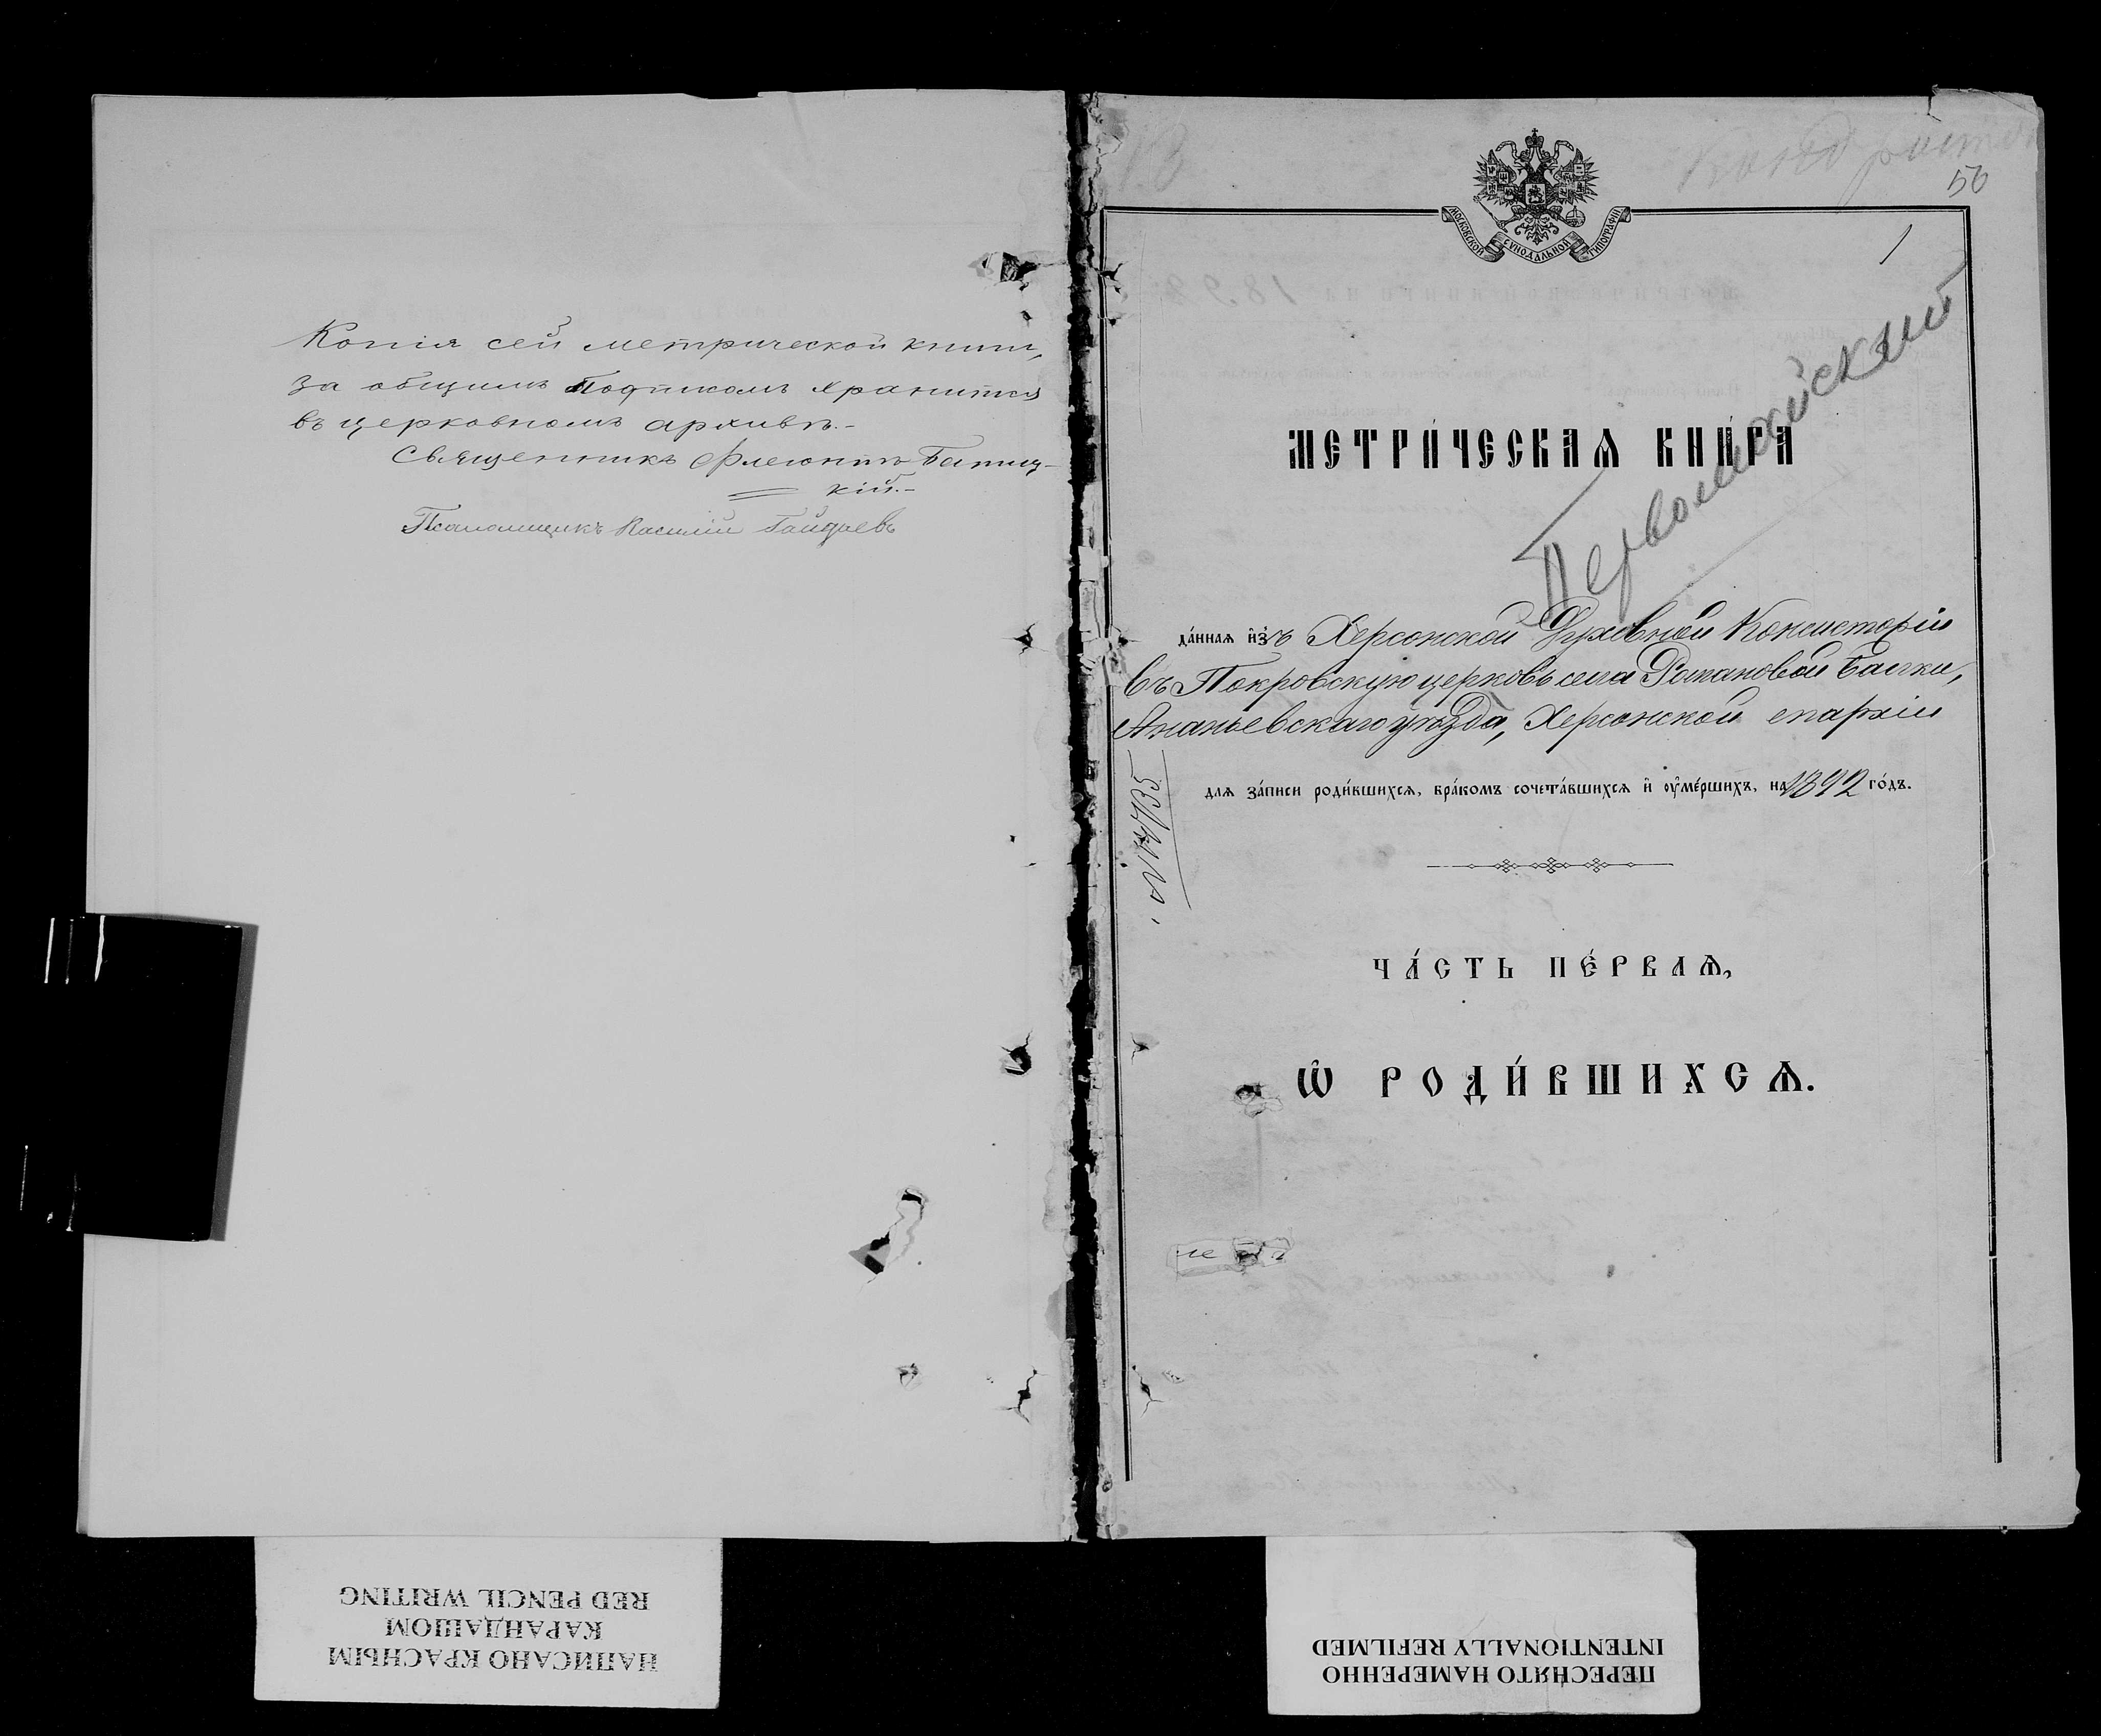 Копія сей метрической книги,
за общимъ подписомъ хранится
въ церковномъ архивѣ.-
Священникъ
кій.-
Псаломщикъ Василій Гайдаевъ
56
1
МОСКОВСКОЙ СѴНОДАЛЬНОЙ ТИПОГРАФІИ
Первомайский
МЕТРИ́ЧЕСКАѦ КНИ́ГА
да́ннаѧ и҆зъ Херсонской Духовной Консисторіи
въ Покровскую церковь села Романовой Балки,
Ананьевскаго уѣзда, Херсонской епархіи
для за́писи роди́вшихсѧ, бра́комъ сочета́вшихсѧ и҆ ᲂу҆ме́ршихъ, на 1892 го́дъ.
ЧА́СТЬ ПЕ́РВАѦ,
Ѽ РОДИ́ВШИХСѦ.
НАПИСАНО КРАСНЫМ
КАРАНДАШОМ
RED PENCIL WRITING
ПЕРЕСНЯТО НАМЕРЕННО
INTENTIONALLY REFILMED